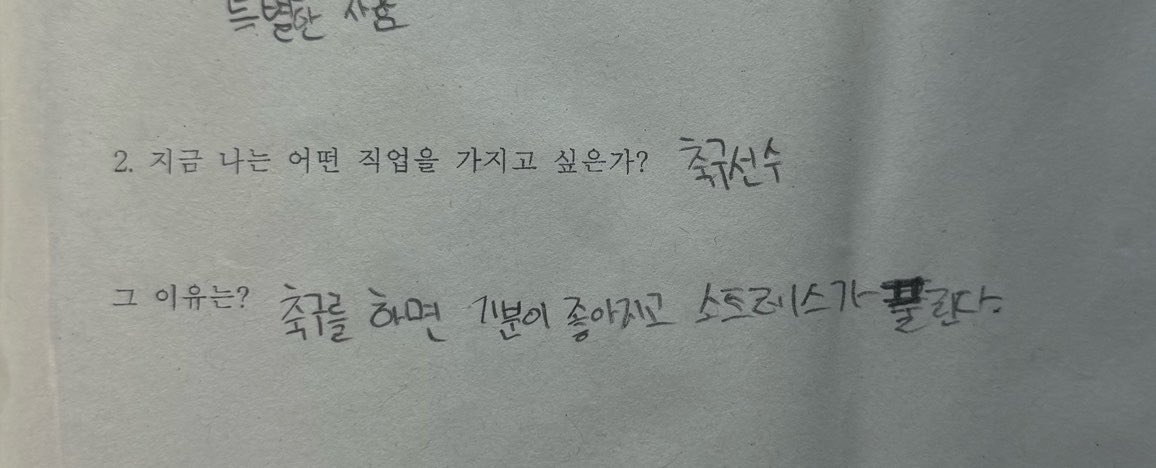 특별한 사람
2. 지금 나는 어떤 직업을 가지고 싶은가? 축구선수
그 이유는? 축구를 하면 기분이 좋아지고 스트레스가 풀린다.